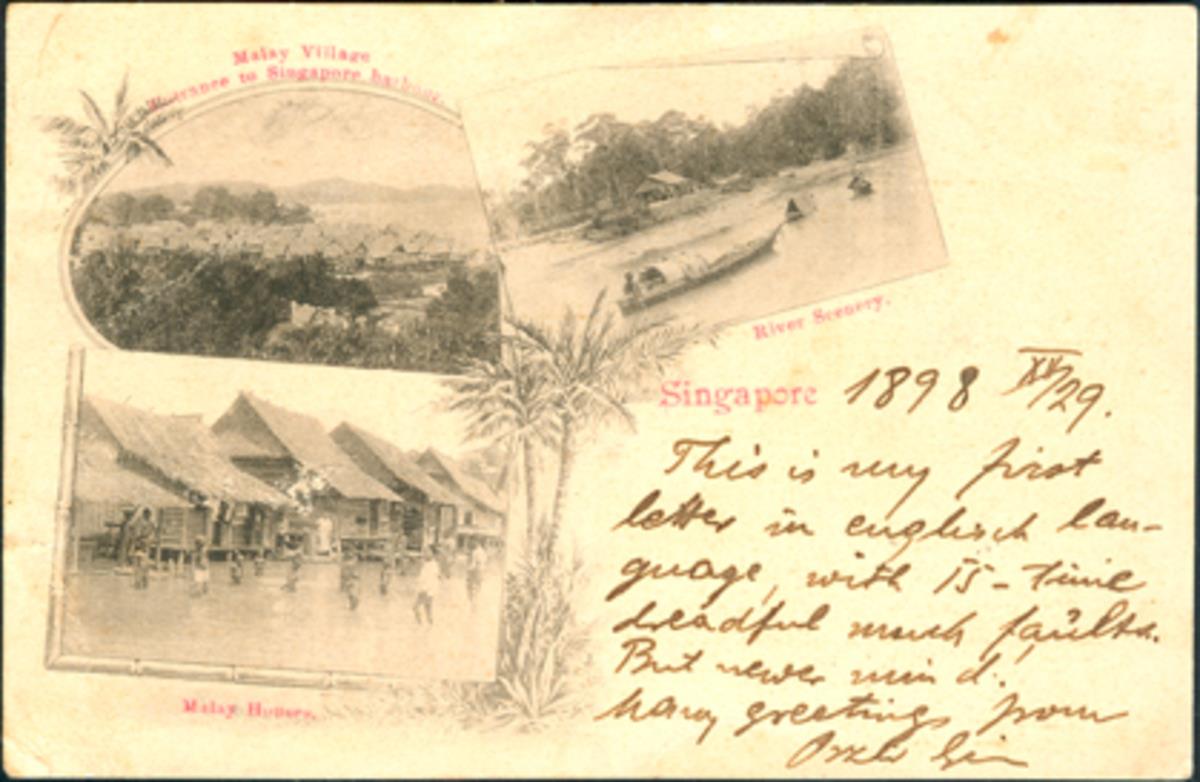 Malay Village
Entrance to Singapore harbour.
River Scenery.
Singapore 1898 XII/29.
This is my first
letter in englisch lan-
guage, with 15-time
dreadful much faults.
But newer mind.
Many greetings from
Malay Houses.